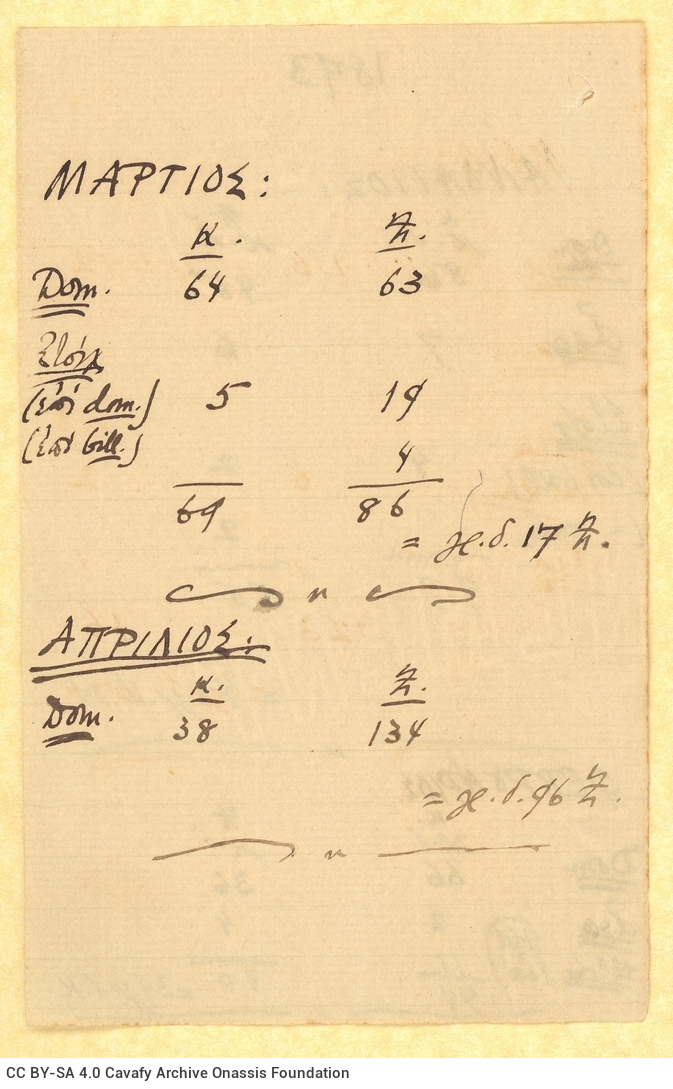 ΜΑΡΤΙΟΣ:
Κ. Ζ.
Dom. 64 63
Στοίχ
(ἐπί dom.) 5 19
(ἐπί bill.)
4
69 86
= χ.δ. 17 Ζ.
"
ΑΠΡΙΛΙΟΣ:
Κ. Ζ.
Dom. 38 134
= χ.δ. 96 Ζ.
"
CC BY-SA 4.0 Cavafy Archive Onassis Foundation